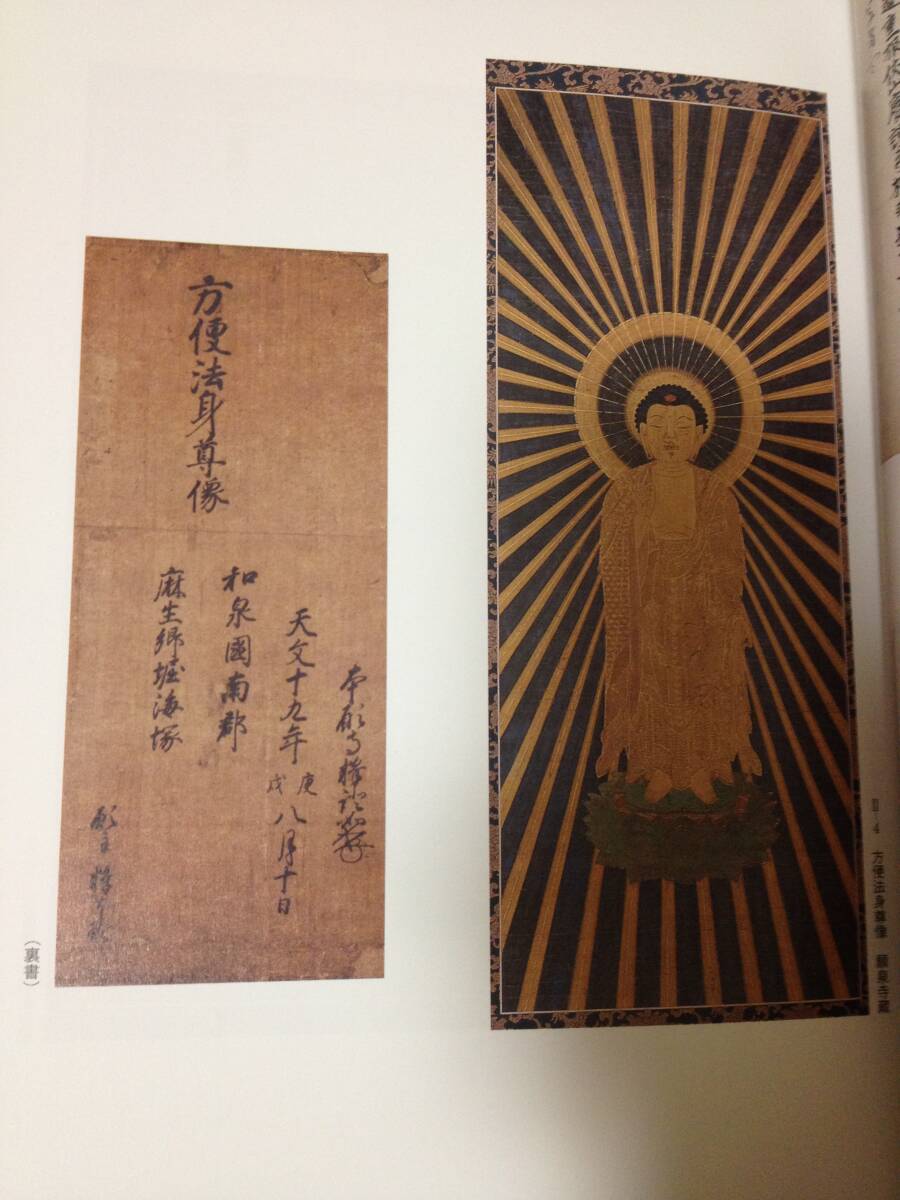 Ⅱ-4 方便法身尊像 願泉寺蔵
方便法身尊像
本願寺釋證如
天文十九年庚戌八月十日
和泉國南郡
麻生郷堀海塚
願主釋
（裏書）